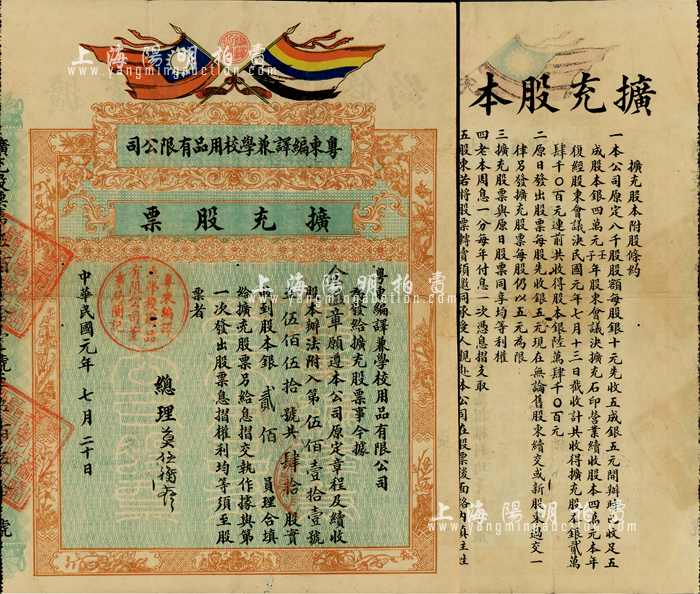 上海陽明拍賣
www.yangmingauction.com
粵東編譯兼學校用品有限公司
擴充股票
粵東編譯兼學校用品有限公司
為發給擴充股票事今據
章願遵本公司原定章程及續收
股本辦法附入第伍佰壹拾壹號
伍佰伍拾號共肆拾股實
到股本銀貳佰員理合填
給擴充股票另給息摺交執作據與第
一次發出股票息摺權利均等須至股
票者
總理
中華民國元年七月二十日
擴充股本
擴充股本附股條約
一本公司原定八千股股額每股銀十元先收五成銀五元開辦時已收足五
成股本銀四萬元壬子年股東會議決擴充石印營業續收股本四萬元本年
復經股東會議決民國元年七月十三日截收計共收得擴充股本銀貳萬
肆千〇百元連前共收得股本銀陸萬肆千〇百元
二原日發出股票每股先收銀五元現在無論舊股東續交或新股東過交一
律另發擴充股票每股仍以五元為限
三擴充股票與原日股票同享均等權利
四老本周息一分每年付息一次憑息摺支取
五股東若將股票轉賣須邀同承受人親赴本公司在股票後面格內填注姓